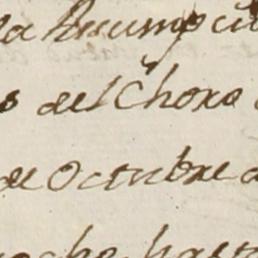 la Assumpcio
s del Choro
de Octubre
oche hasta